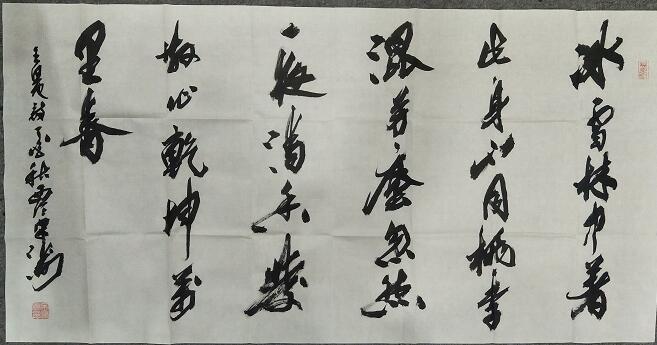 冰雪林中著
此身不同桃李
混芳塵忽然
一夜清香發
散作乾坤萬
里春
王冕詩 秋